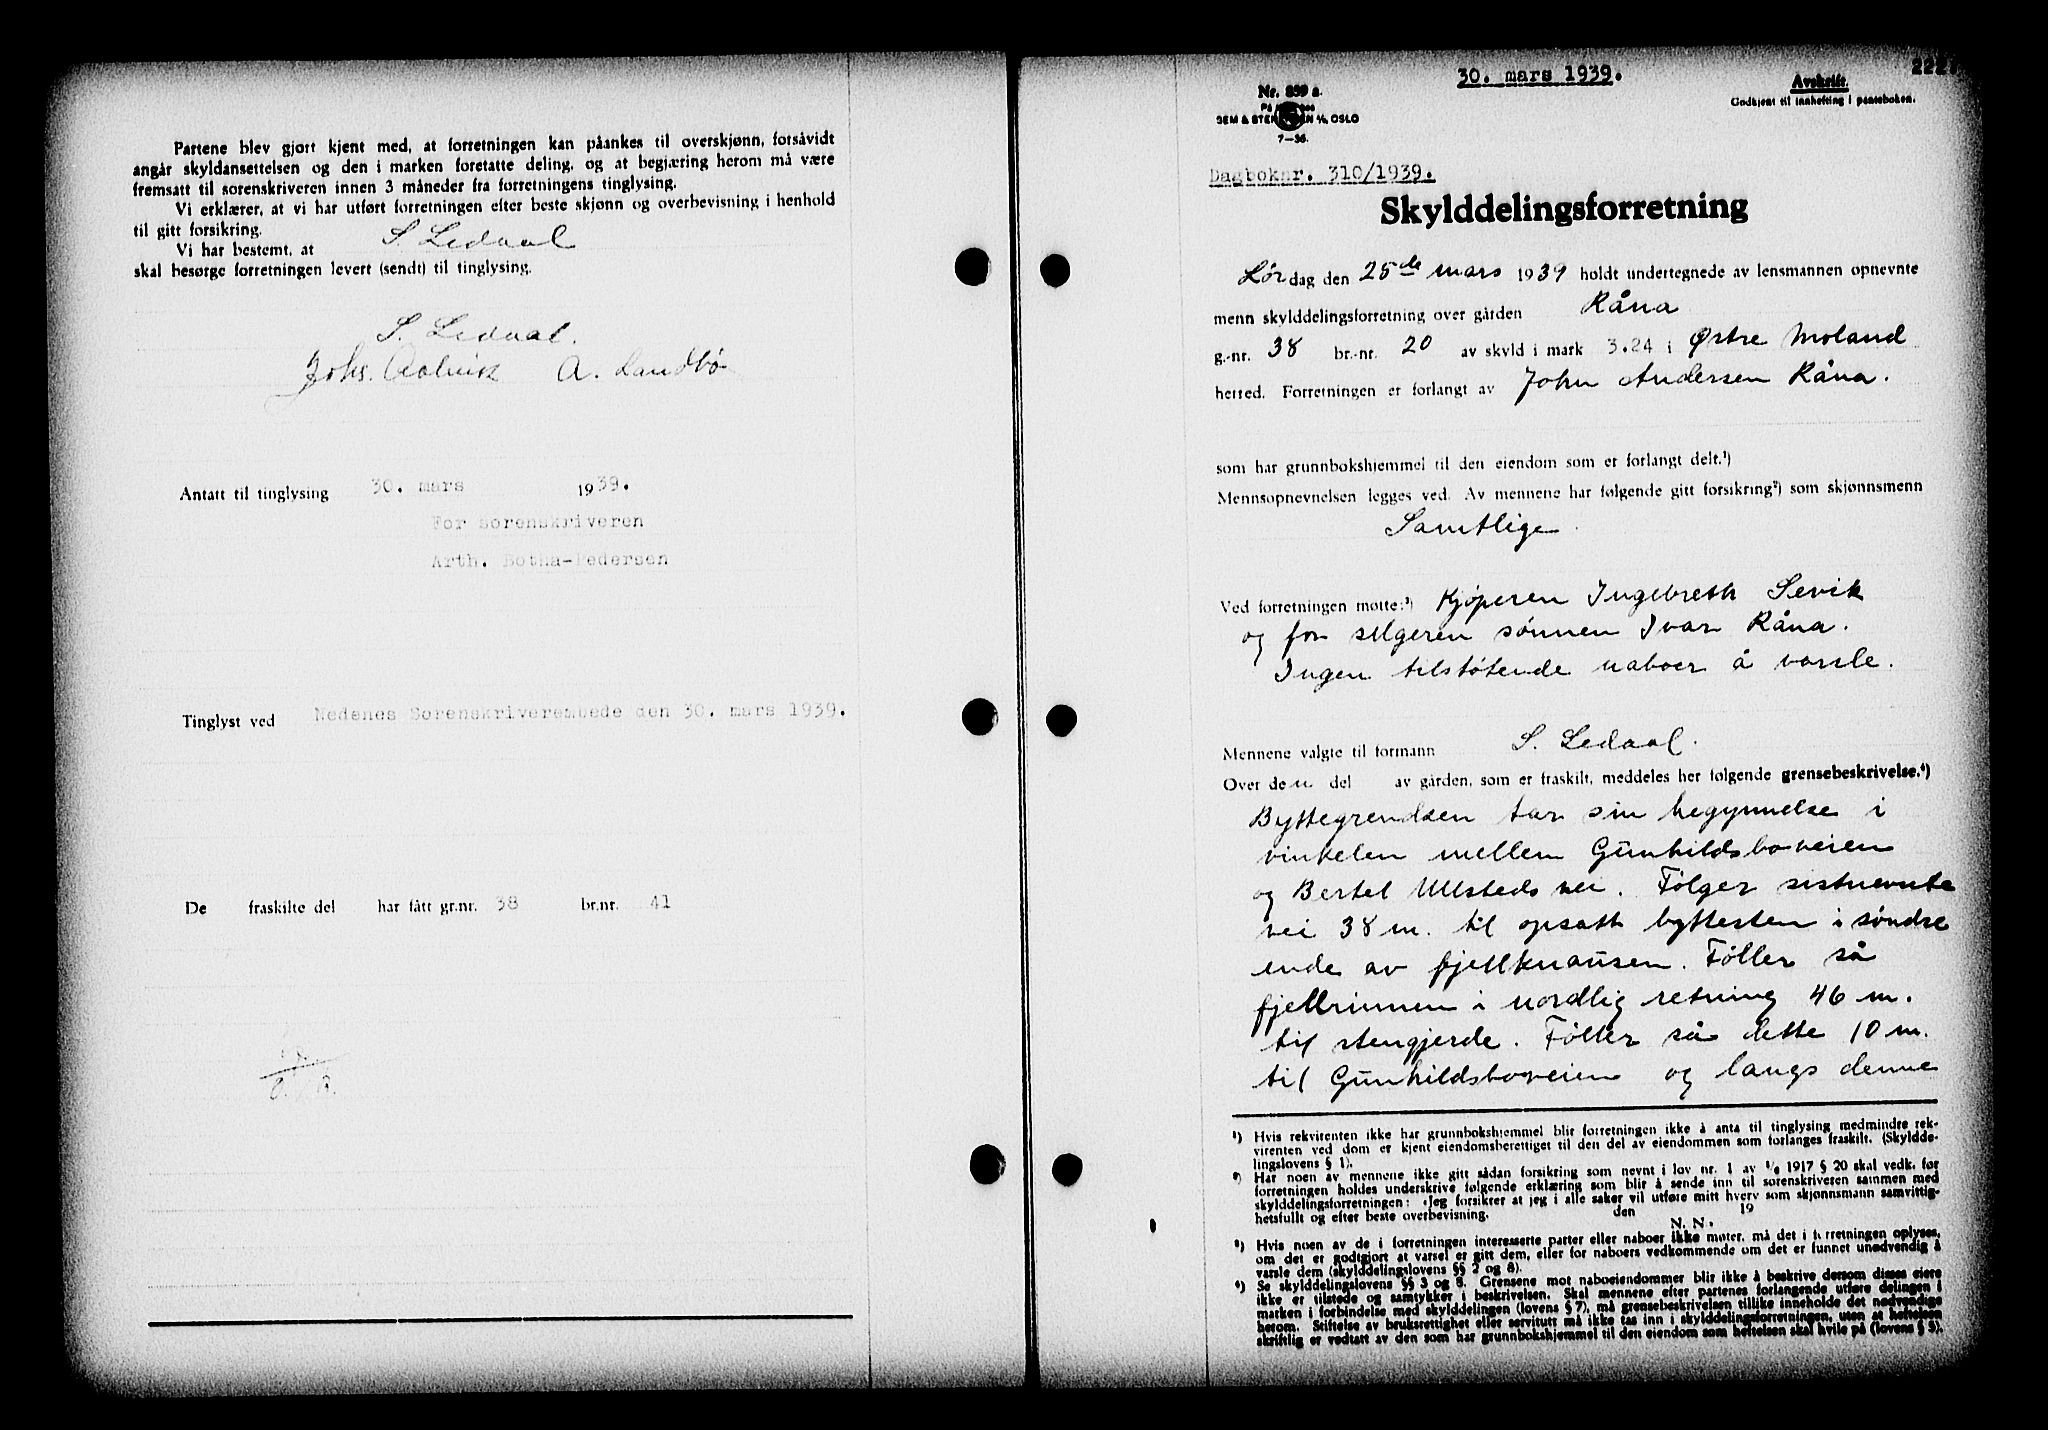 Partene blev gjort kjent med, at forretningen kan påankes til overskjønn, forsåvidt
angår skyldansettelsen og den i marken foretatte deling, og at begjæring herom må være
fremsatt til sorenskriveren innen 3 måneder fra forretningens tinglysing.
Vi erklærer, at vi har utført forretningen efter beste skjønn og overbevisning i henhold
til gitt forsikring.
Vi har bestemt, at S. Ledaal
skal besørge forretningen levert (sendt) til tinglysing.
S. Ledaal.
Johs. Aalvik A. Landbø
Antatt til tinglysing 30. mars 1939.
For sorenskriveren
Arth. Botha-Pedersen
Tinglyst ved Nedenes Sorenskriverembede den 30. mars 1939.
De fraskilte del har fått gr.nr. 38 br.nr. 41
30. mars 1939.
Avskrift.
Godkjent til innhefting i panteboken.
Nr. 859 a.
SEM & STENERSEN A/S, OSLO
7—36.
Dagboknr. 310/1939.
Skylddelingsforretning
Lørdag den 25de mars 1939 holdt undertegnede av lensmannen opnevnte
menn skylddelingsforretning over gården Råna
g.-nr. 38 br.-nr. 20 av skyld i mark 3.24 i Østre Moland
herred. Forretningen er forlangt av John Andersen Råna.
som har grunnbokshjemmel til den eiendom som er forlangt delt.¹)
Mennsopnevnelsen legges ved. Av mennene har følgende gitt forsikring²) som skjønnsmenn
Samtlige.
Ved forretningen møtte:³) Kjøperen Ingebreth Sevik
og for selgeren sønnen Ivar Råna.
Ingen tilstøtende naboer å varsle.
Mennene valgte til formann S. Ledaal.
Over den del av gården, som er fraskilt, meddeles her følgende grensebeskrivelse.⁴)
Byttegrendsen tar sin begynnelse i
vinkelen mellem Gunhildsboveien
og Bertel Ullsteds vei. Følger sistnevnte
vei 38 m. til opsatt byttesten i søndre
ende av fjellknausen. Føller så
fjellrinnen i nordlig retning 46 m.
til stengjerde. Føller så dette 10 m.
til Gunhildsboveien og langs denne
¹) Hvis rekvirenten ikke har grunnbokshjemmel blir forretningen ikke å anta til tinglysing medmindre rek-
virenten ved dom er kjent eiendomsberettiget til den del av eiendommen som forlanges fraskilt. (Skyldde-
lingslovens § 1).
²) Har noen av mennene ikke gitt sådan forsikring som nevnt i lov nr. 1 av 1/6 1917 § 20 skal vedk. før
forretningen holdes underskrive følgende erklæring som blir å sende inn til sorenskriveren sammen med
skylddelingsforretningen: «Jeg forsikrer at jeg i alle saker vil utføre mitt hverv som skjønnsmann samvittig-
hetsfullt og efter beste overbevisning. den 19
N. N.
³) Hvis noen av de i forretningen interesserte parter eller naboer ikke møter, må det i forretningen oplyses,
om det er godtgjort at varsel er gitt dem, eller for naboers vedkommende om det er funnet unødvendig å
varsle dem (skylddelingslovens §§ 2 og 8).
⁴) Se skylddelingslovens §§ 3 og 8. Grensene mot naboeiendommer blir ikke å beskrive dersom disses eiere
ikke er tilstede og samtykker i beskrivelsen. Skal mennene efter partenes forlangende utføre delingen i
marken i forbindelse med skylddelingen (lovens § 7), må grensebeskrivelsen tillike inneholde det nødvendige
herom. Stiftelse av bruksrettighet eller servitutt må ikke tas inn i skylddelingsforretningen, uten at heftelsen
skriftlig er vedtatt av den som har grunnbokshjemmel til den eiendom som heftelsen skal hvile på (lovens § 5).